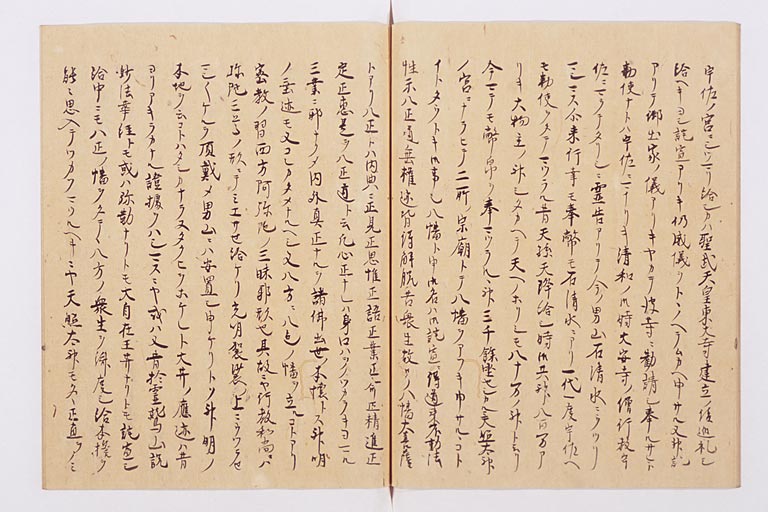 宇佐ノ宮ニシツマリ給シカハ聖武天皇東大寺建立ノ後巡礼シ
給ヘキヨシ託宣アリキ仍威儀ヲトヽノヘテムカヘ申サル又神託
アリテ御出家ノ儀アリキヤカテ彼寺ニ勧請シ奉ルサレト
勅使ナトハ宇佐ニマイリキ清和ノ御時大安寺ノ僧行教宇
佐ニマウテタリシニ霊告アリテ今ノ男山石清水ニウツリ
マシマス尓来行幸モ奉幣モ石清水ニアリ一代一度宇佐ヘ
モ勅使ヲタテマツラル昔天孫天降給シ時御共神八百万ア
リキ大物主ノ神シタカヘテ天ヘノホリシモ八十万ノ神トイヘリ
今マテモ幣帛ヲ奉マツラルヽ神三千餘坐也シカルニ天照太神
ノ宮ニナラヒテ二所ノ宗廟トテ八幡ヲアフキ申サルヽコト
イトタウトキ御事也八幡ト申御名ハ御託宣ニ得道来不動法
性示八正道垂権迹皆得解脱苦衆生故号八幡大菩薩
トアリ八正トハ内典ニ正見正思惟正語正業正命正精進正
定正恵是ヲ八正道ト云凡心正ナレハ身口ハヲノツカラキヨマル
三業ニ邪ナクメ内外真正ナルヲ諸佛出世ノ本懐トス神明
ノ垂迹モ又コレカタメナルヘシ又八方ニ八色ノ幡ヲ立ルコトアリ
密教ノ習西方阿弥陀ノ三昧耶形也其故ニヤ行教和尚ニハ
弥陀三尊ノ形ニテミエサセ給ケリ光明袈裟ノ上ニウツラセマ
シマシケルヲ頂戴メ男山ニハ安置シ申ケリトソ神明ノ
本地ヲ云コトハタシカナラヌタクヒヲホケレト大井ノ應迹ハ昔
ヨリアキラカナル證據ヲハシマスニヤ或ハ又昔於霊鷲山説
妙法華経トモ或ハ弥勒ナリトモ大自在王井ナリトモ託宣シ
給中ニモ八正ノ幡ヲタテヽ八方ノ衆生ヲ済度シ給本誓ヲ
能々思入テツカウマツルヘキニヤ天照太神モタヽ正直ヲノミ